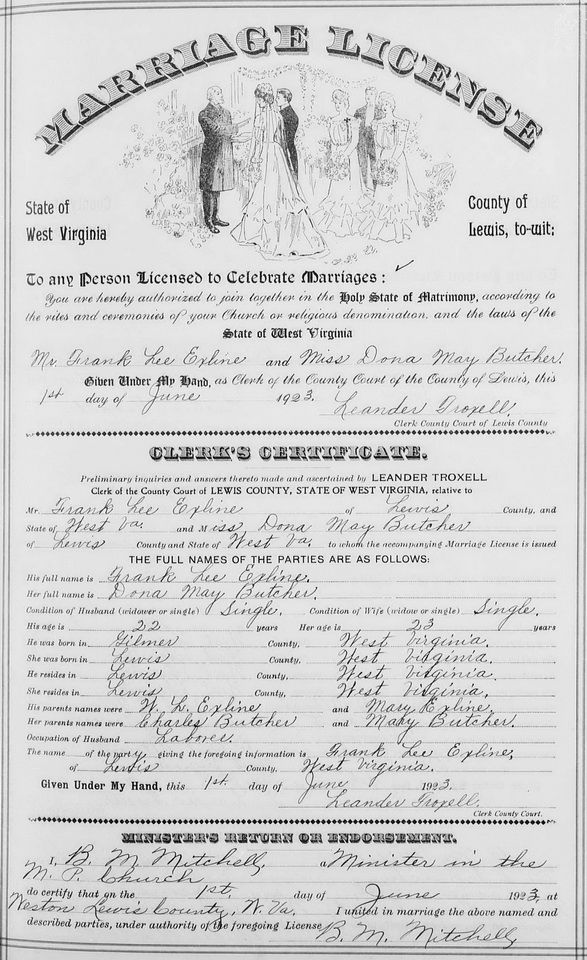 MARRIAGE LICENSE
State of West Virginia
County of Lewis, to-wit:
To any Person Licensed to Celebrate Marriages:
You are hereby authorized to join together in the Holy State of Matrimony, according to
the rites and ceremonies of your Church or religious denomination, and the laws of the
State of West Virginia
Mr. Frank Lee Exline and Miss Dona May Butcher.
Given Under My Hand, as Clerk of the County Court of the County of Lewis, this
1st day of June 1923. Leander Troxell.
Clerk County Court of Lewis County
CLERK'S CERTIFICATE.
Preliminary inquiries and answers thereto made and ascertained by LEANDER TROXELL
Clerk of the County Court of LEWIS COUNTY, STATE OF WEST VIRGINIA, relative to
Mr. Frank Lee Exline of Lewis County, and
State of West Va. and Miss Dona May Butcher
of Lewis County and State of West Va. to whom the accompanying Marriage License is issued
THE FULL NAMES OF THE PARTIES ARE AS FOLLOWS:
His full name is Frank Lee Exline.
Her full name is Dona May Butcher.
Condition of Husband (widower or single) Single. Condition of Wife (widow or single) Single.
His age is 22 years Her age is 23 years
He was born in Gilmer County, West Virginia.
She was born in Lewis County, West Virginia.
He resides in Lewis County, West Virginia.
She resides in Lewis County, West Virginia.
His parents names were W. L. Exline and Mary Exline.
Her parents names were Charles Butcher and Mary Butcher.
Occupation of Husband Laborer.
The name of the party giving the foregoing information is Frank Lee Exline,
of Lewis County, West Virginia.
Given Under My Hand, this 1st. day of June 1923.
Leander Troxell.
Clerk County Court.
MINISTER'S RETURN OR ENDORSEMENT.
I, B. M. Mitchell, a Minister in the
M. P. Church
do certify that on the 1st. day of June 1923, at
Weston Lewis County, W. Va. I united in marriage the above named and
described parties, under authority of the foregoing License
B. M. Mitchell